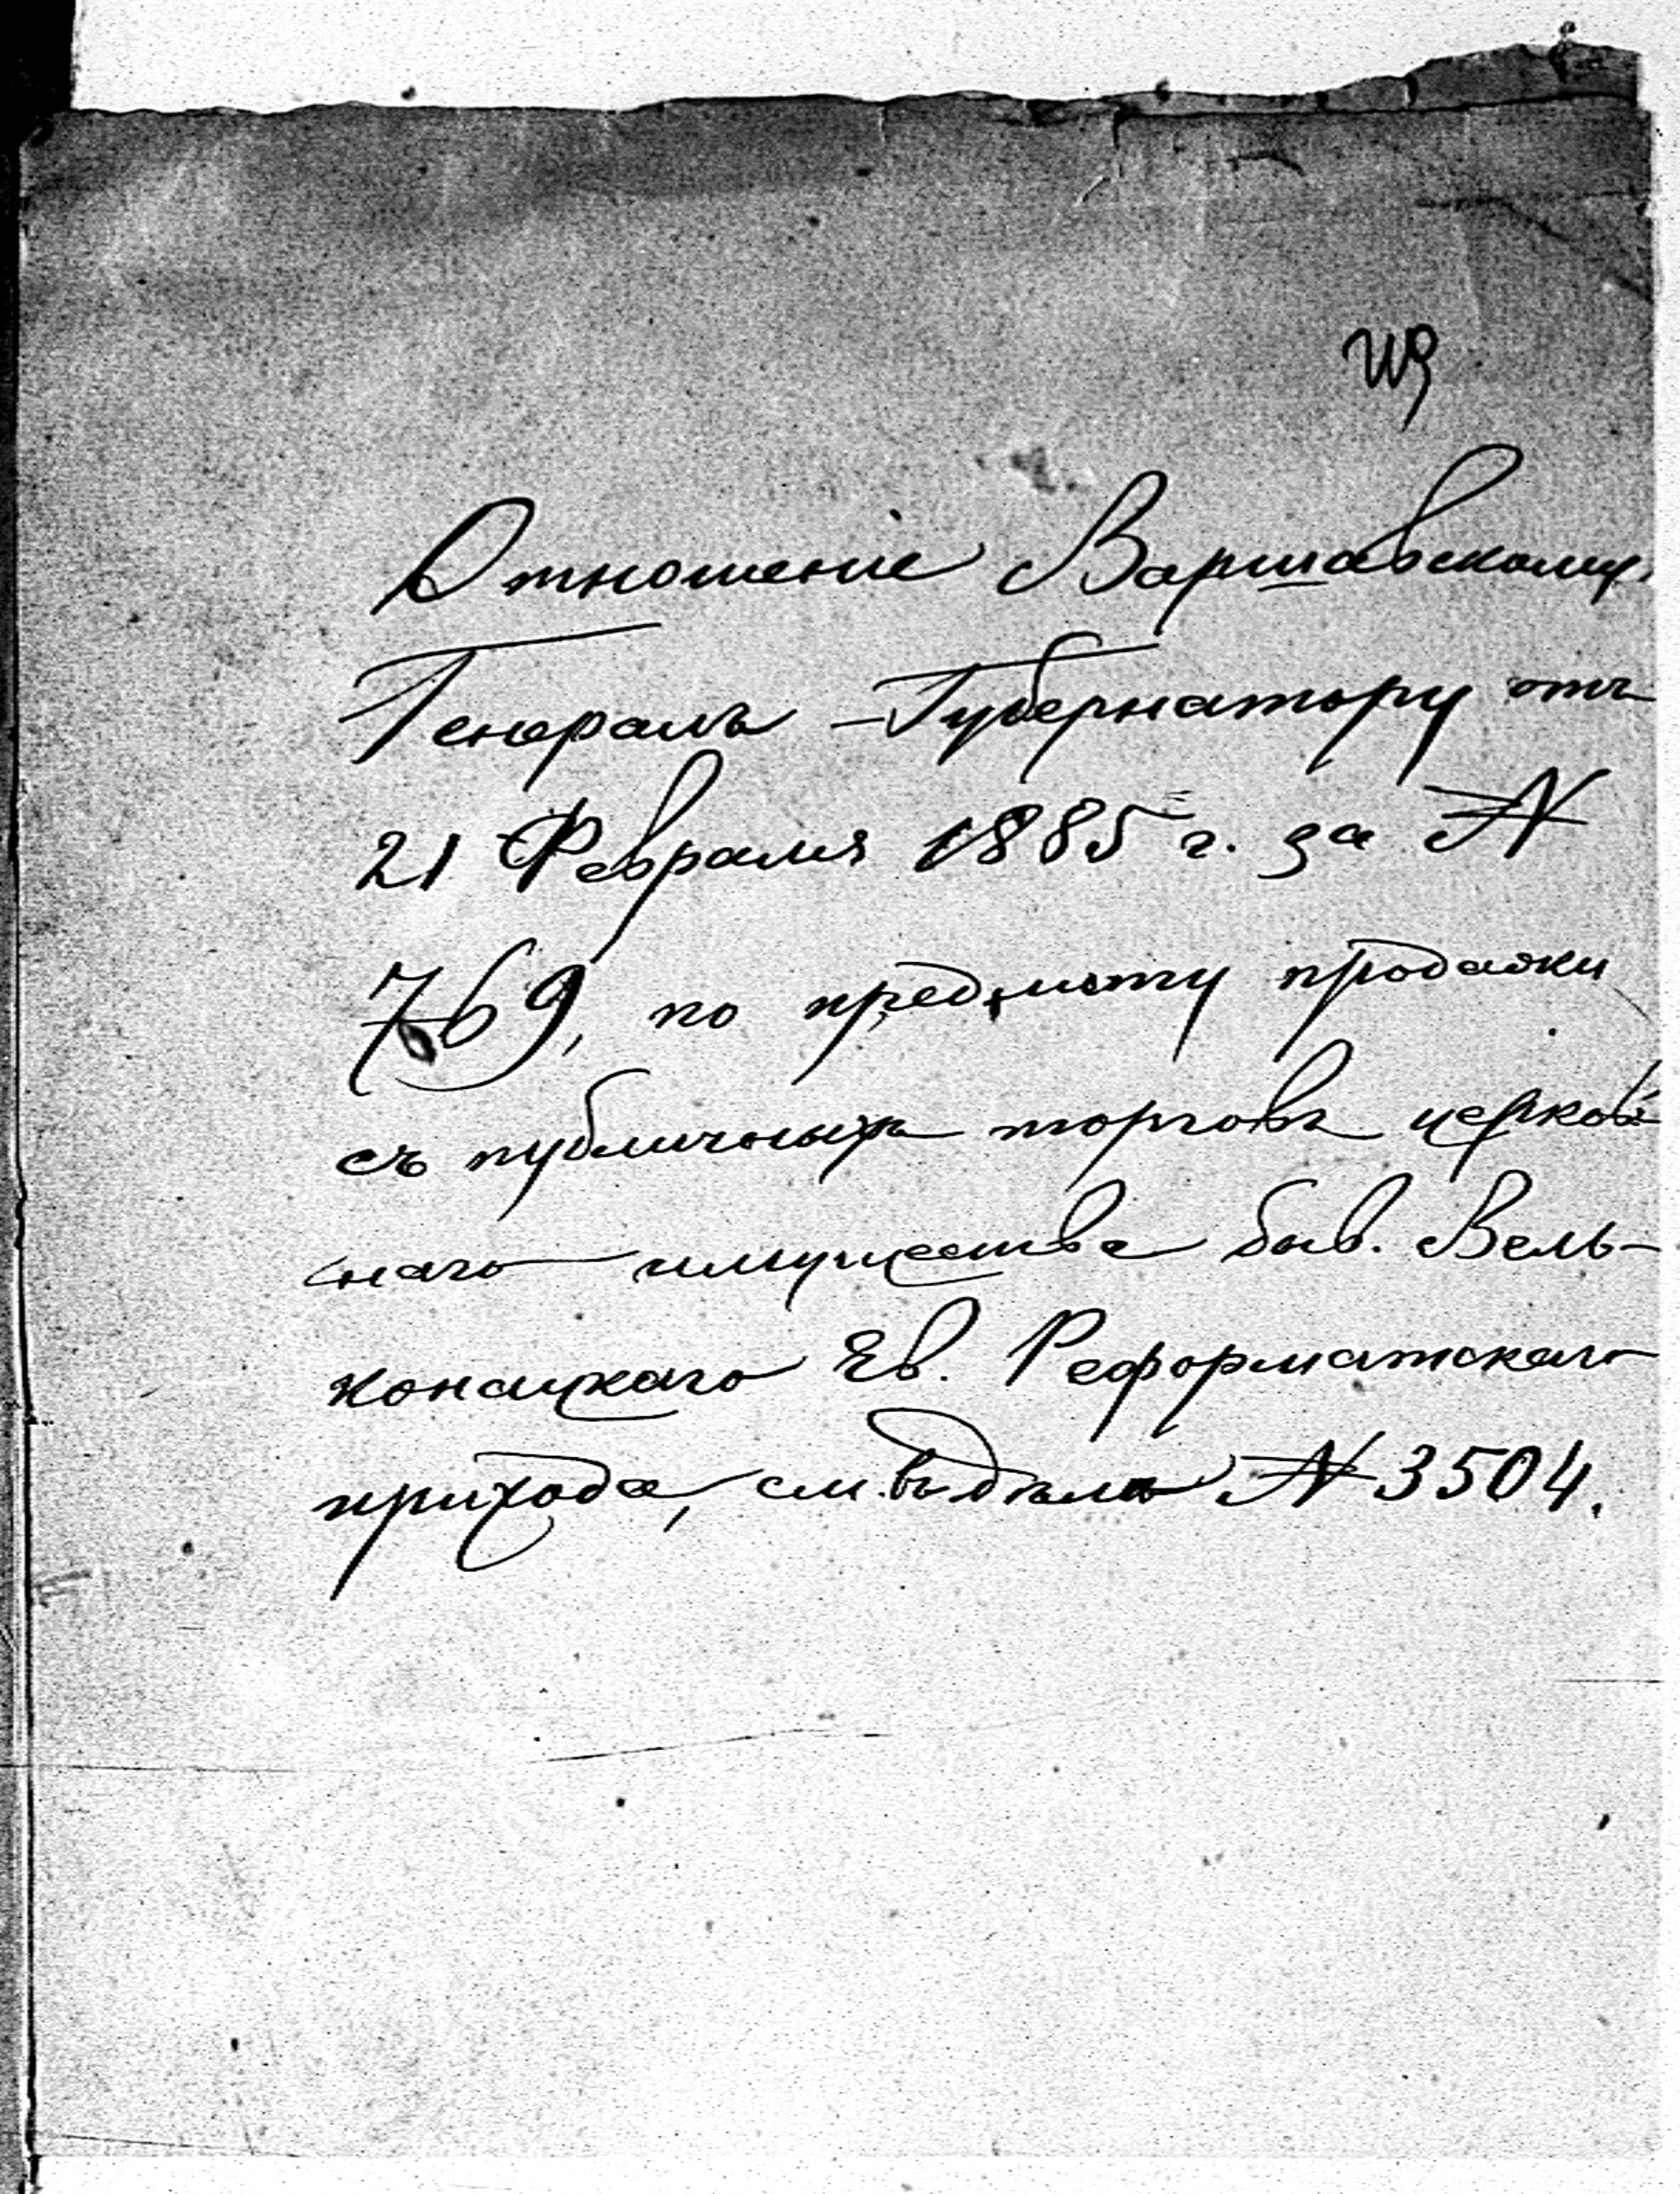 Отношеніе Варшавскому
Генералъ-Губернатору отъ
21 Февраля 1885 г. за №
769, по предмету продажи
съ публичныхъ торговъ церков-
наго имущества быв. Вель-
наго Ев. Реформатскаго
прихода, см. въ дѣлѣ № 3504.